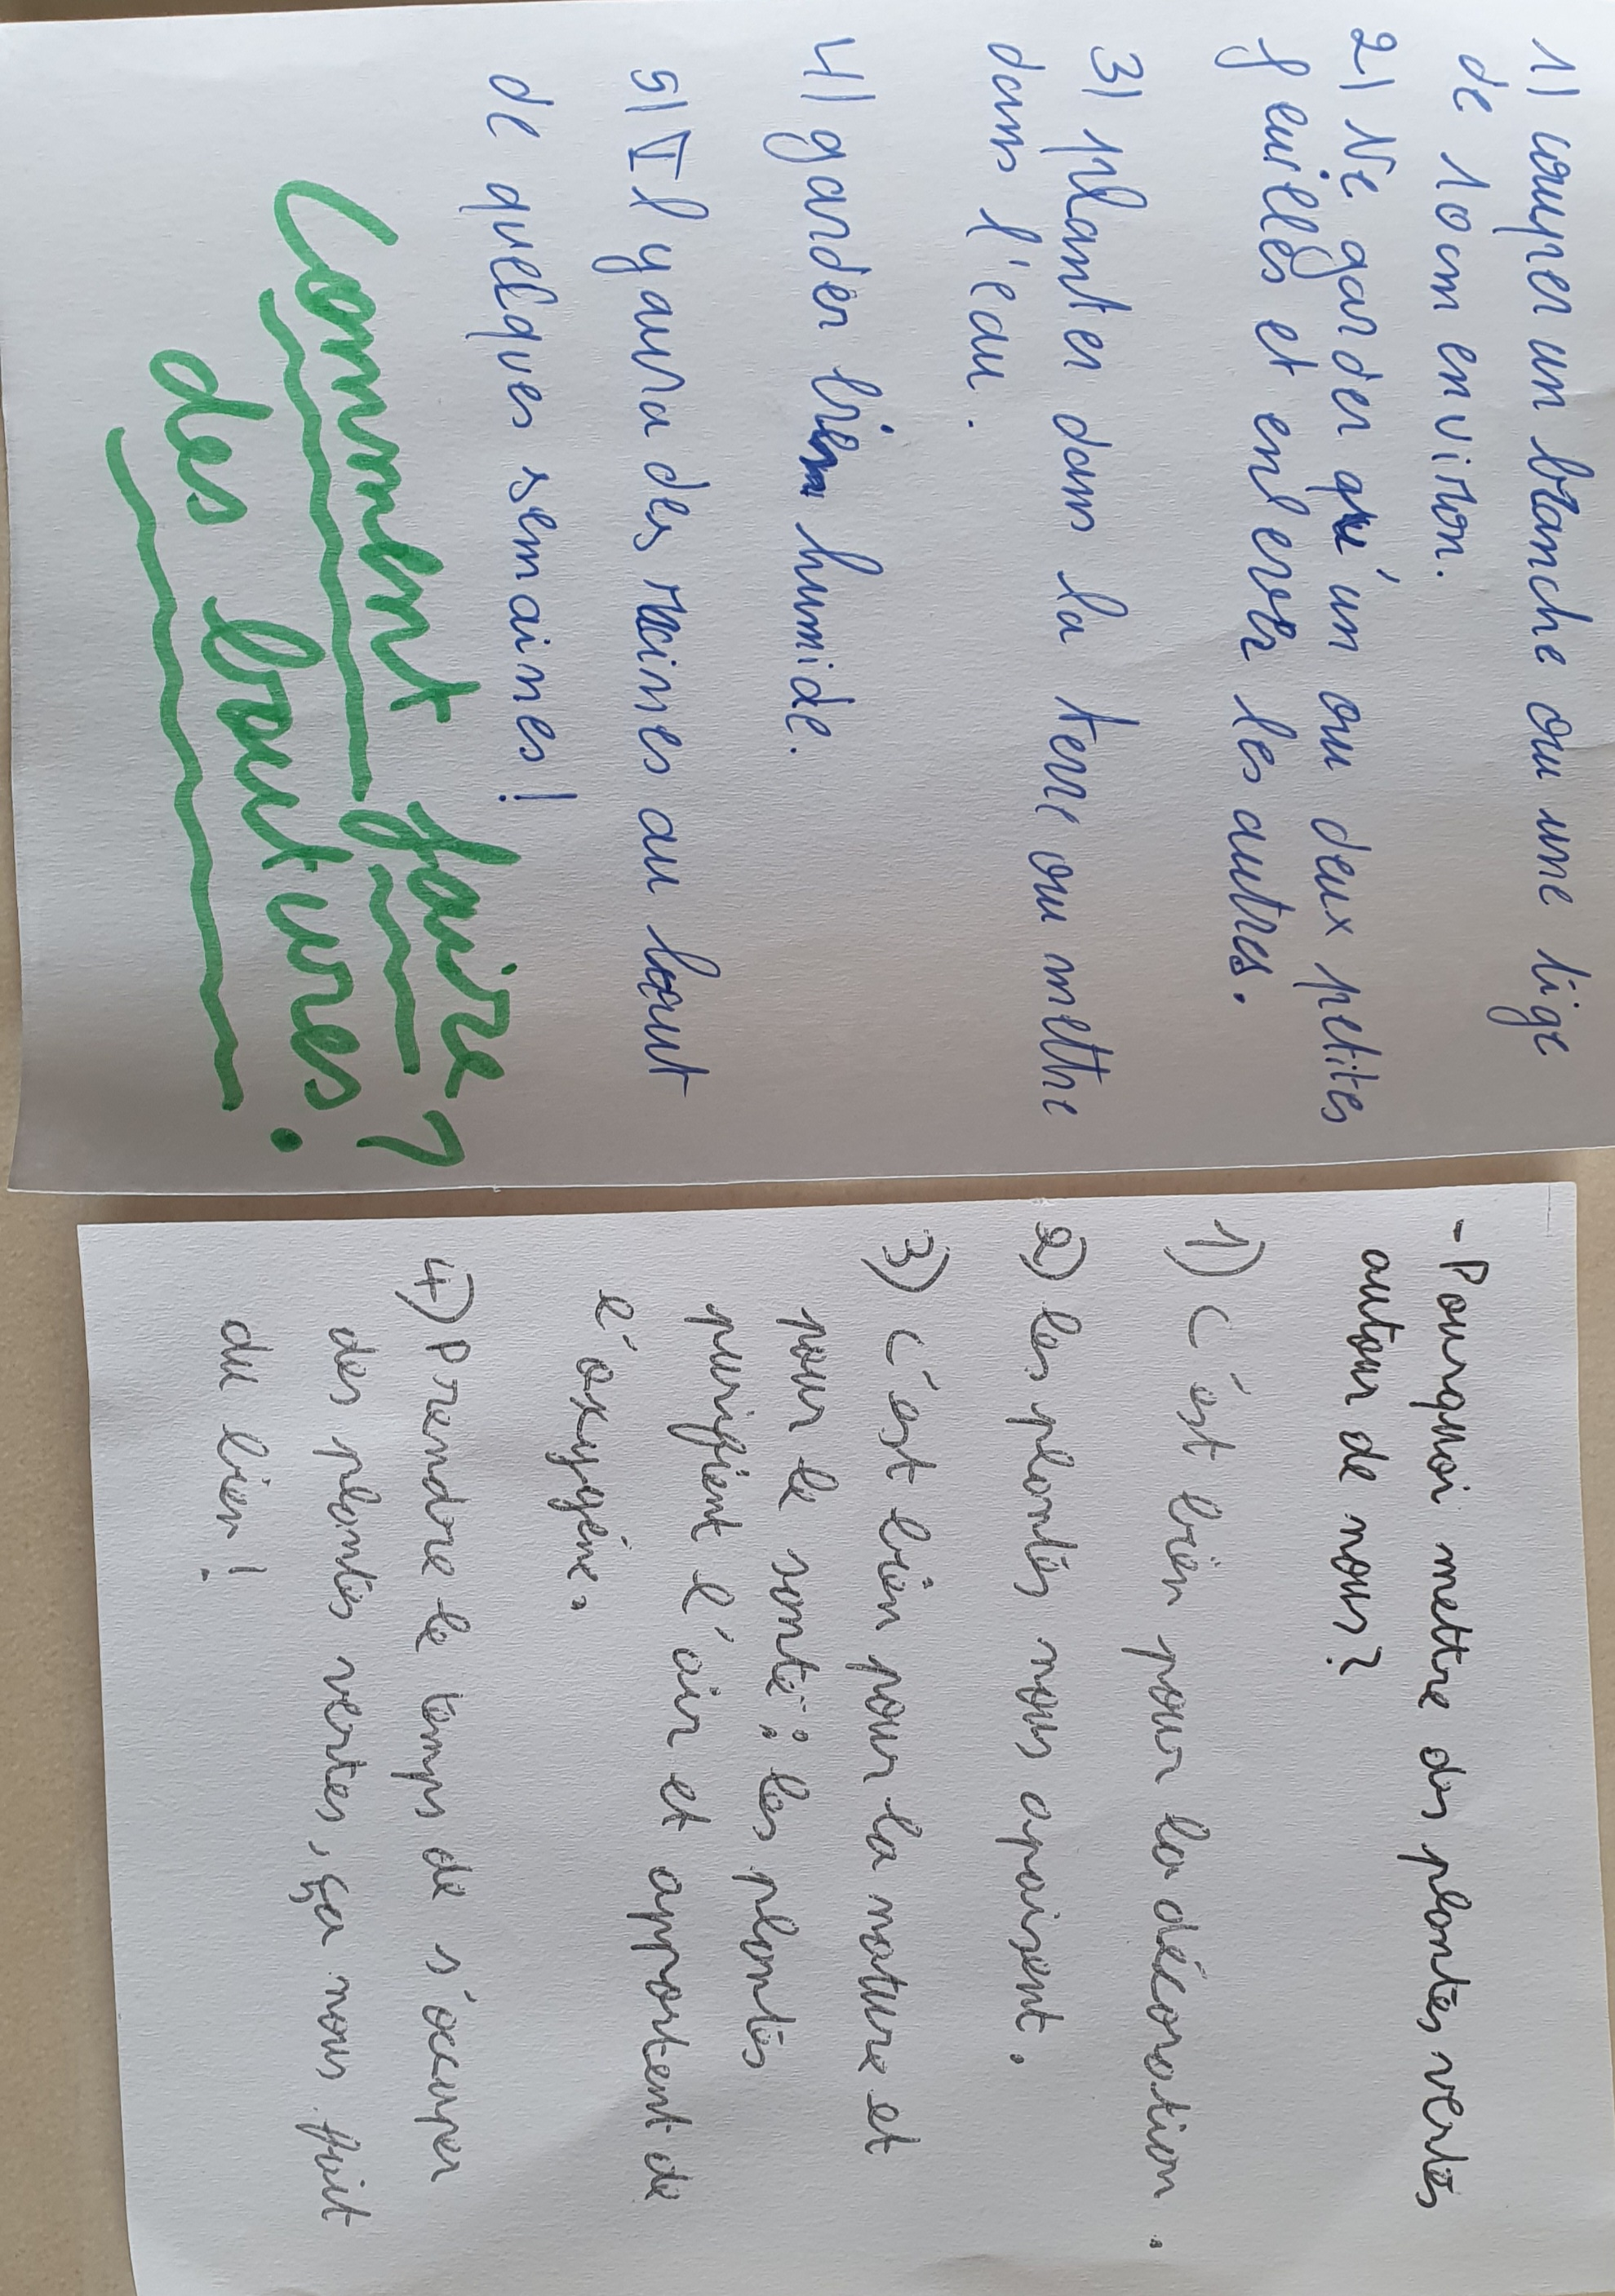 1) couper un branche ou une tige
de 10 cm environ.
2) Ne garder qu'un ou deux petites
feuilles et enlever les autres.
3) planter dans la terre ou mettre
dans l'eau.
4) garder bien humide.
5) Il y aura des racines au bout
de quelques semaines !
Comment faire ?
des boutures.
- Pourquoi mettre des plantes vertes
autour de nous ?
1) C'est bien pour la décoration.
2) les plantes nous apaisent.
3) C'est bien pour la nature et
pour la santé : les plantes
purifient l'air et apportent de
l'oxygène.
4) Prendre le temps de s'occuper
des plantes vertes, ça nous fait
du bien !